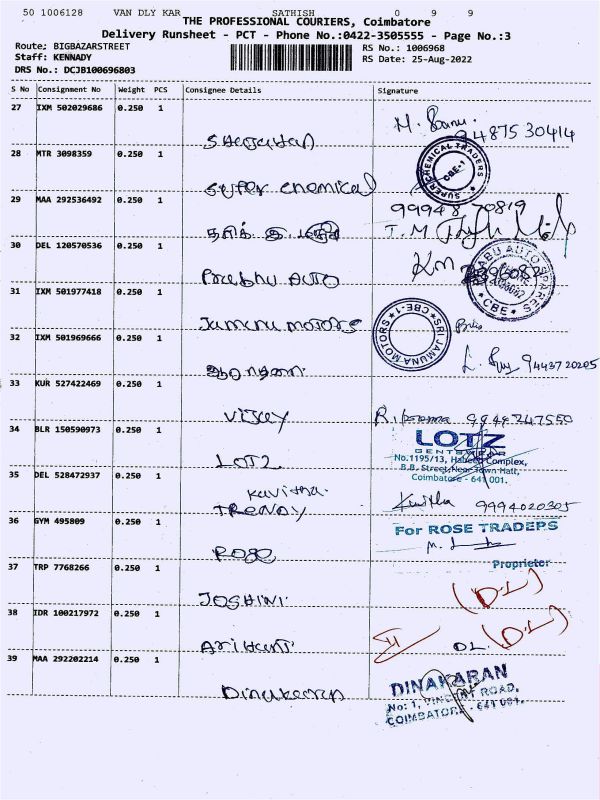 50 1006128 VAN DLY KAR SATHISH 0 9 9
THE PROFESSIONAL COURIERS, Coimbatore
Delivery Runsheet - PCT - Phone No.:0422-3505555 - Page No.:3
Route: BIGBAZARSTREET RS No.: 1006968
Staff: KENNADY RS Date: 25-Aug-2022
DRS No.: DCJB100696803
S No Consignment No Weight PCS Consignee Details Signature
27 IXM 502029686 0.250 1
94875 30414
28 MTR 3098359 0.250 1
super chemical SUPER CHEMICAL TRADERS CBE-1
29 MAA 292536492 0.250 1 99948 70819
T.M
30 DEL 120570536 0.250 1
Prabhu AUTO PRABU AUTO SPARES CBE
31 IXM 501977418 0.250 1
Jamunu motors SRI JAMUNA MOTORS CBE-1
32 IXM 501969666 0.250 1
94437 20205
33 KUR 527422469 0.250 1
Vijay 99447 47550
34 BLR 150590973 0.250 1 LOTZ
No.1195/13, Complex,
LOTZ B.B. Street, Near Town Hall,
35 DEL 528472937 0.250 1 Coimbatore - 641 001.
Kavitha
TRENDY Kavitha 9994020305
36 GYM 495809 0.250 1 For ROSE TRADERS
ROSE
37 TRP 7768266 0.250 1 Proprietor
JOSHINI (D.L)
38 IDR 100217972 0.250 1 (D.L)
Arihant DL.
39 MAA 292202214 0.250 1 DINAKARAN
Dinakaran No: 1, ROAD,
COIMBATORE - 641 001.